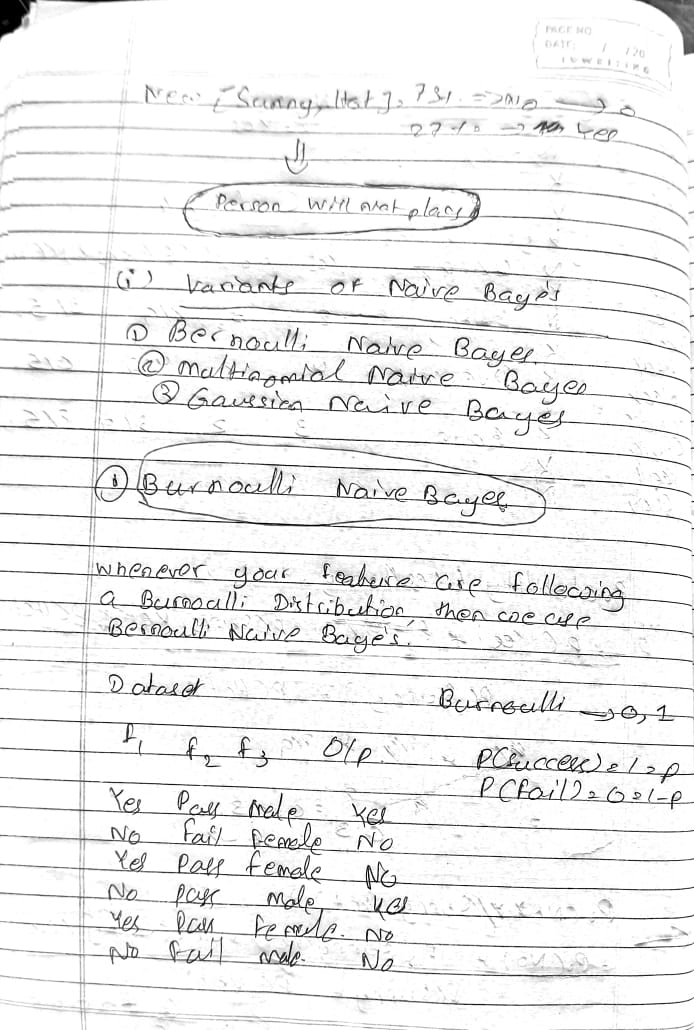 PAGE NO
DATE: / /20
New [Sunny, Hot], 73%. => No → 0
27% → Yes
⇓
Person will not play
(i) Variants of Naive Baye's
① Bernoulli Naive Bayes
② Multinomial Naive Bayes
③ Gaussien Naive Bayes
① Burnoulli Naive Bayes
whenever your feature are following
a Burnoulli Distribution, then we use
Bernoulli Naive Baye's.
Dataset Burnoulli → 0, 1
f1 f2 f3 O/p P(success) = 1 = p
P(fail) = 0 = 1-p
Yes Pass male Yes
No Fail Female No
Yes Pass female No
No pass male Yes
Yes Pass Female. No
No fail male. No